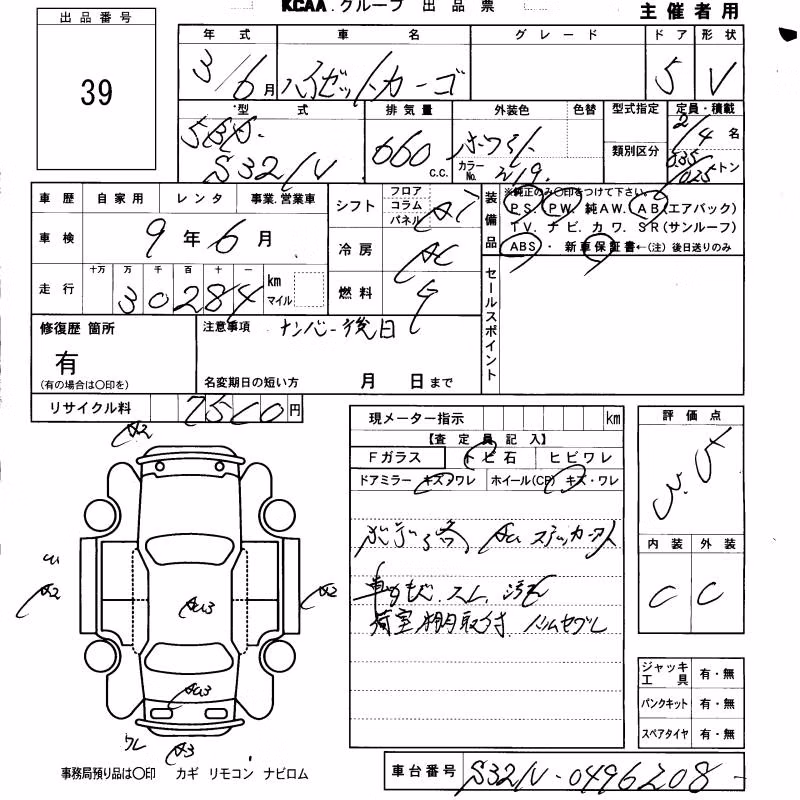 KCAA.グループ 出品票
主催者用
出品番号
39
年式 車名 グレード ドア 形状
3/6月 ハイゼットカーゴ 5 V
型式 排気量 外装色 色替 型式指定 定員・積載
5BD- 660 c.c. ホワイト 2/4 名
S321V カラーNo. W19 類別区分 トン
車歴 自家用 レンタ 事業.営業車
車検 9年6月
走行 十万 万 千 百 十 一
30284 km マイル
シフト フロア コラム パネル AT
冷房 AC
燃料 G
装備品 ※純正のみ〇印をつけて下さい。
PS. PW. 純AW. AB(エアバック)
TV. ナビ. カワ. SR(サンルーフ)
ABS・ 新車保証書←(注) 後日送りのみ
セールスポイント
修復歴 箇所
有
(有の場合は〇印を)
注意事項 ナンバー後日
名変期日の短い方 月 日まで
リサイクル料 7500 円
現メーター指示 km
【査定員記入】
Fガラス トビ石 ヒビワレ
ドアミラー キズ・ワレ ホイール(CP) キズ・ワレ
ボデー各 AU ステッカー
スレ、汚れ
荷室棚取付
評価点
3.5
内装 外装
C C
A2
A2
AU3
A2
AU3
ワレ A3
ジャッキ工具 有・無
パンクキット 有・無
スペアタイヤ 有・無
事務局預り品は〇印 カギ リモコン ナビロム
車台番号 S321V-0496208-